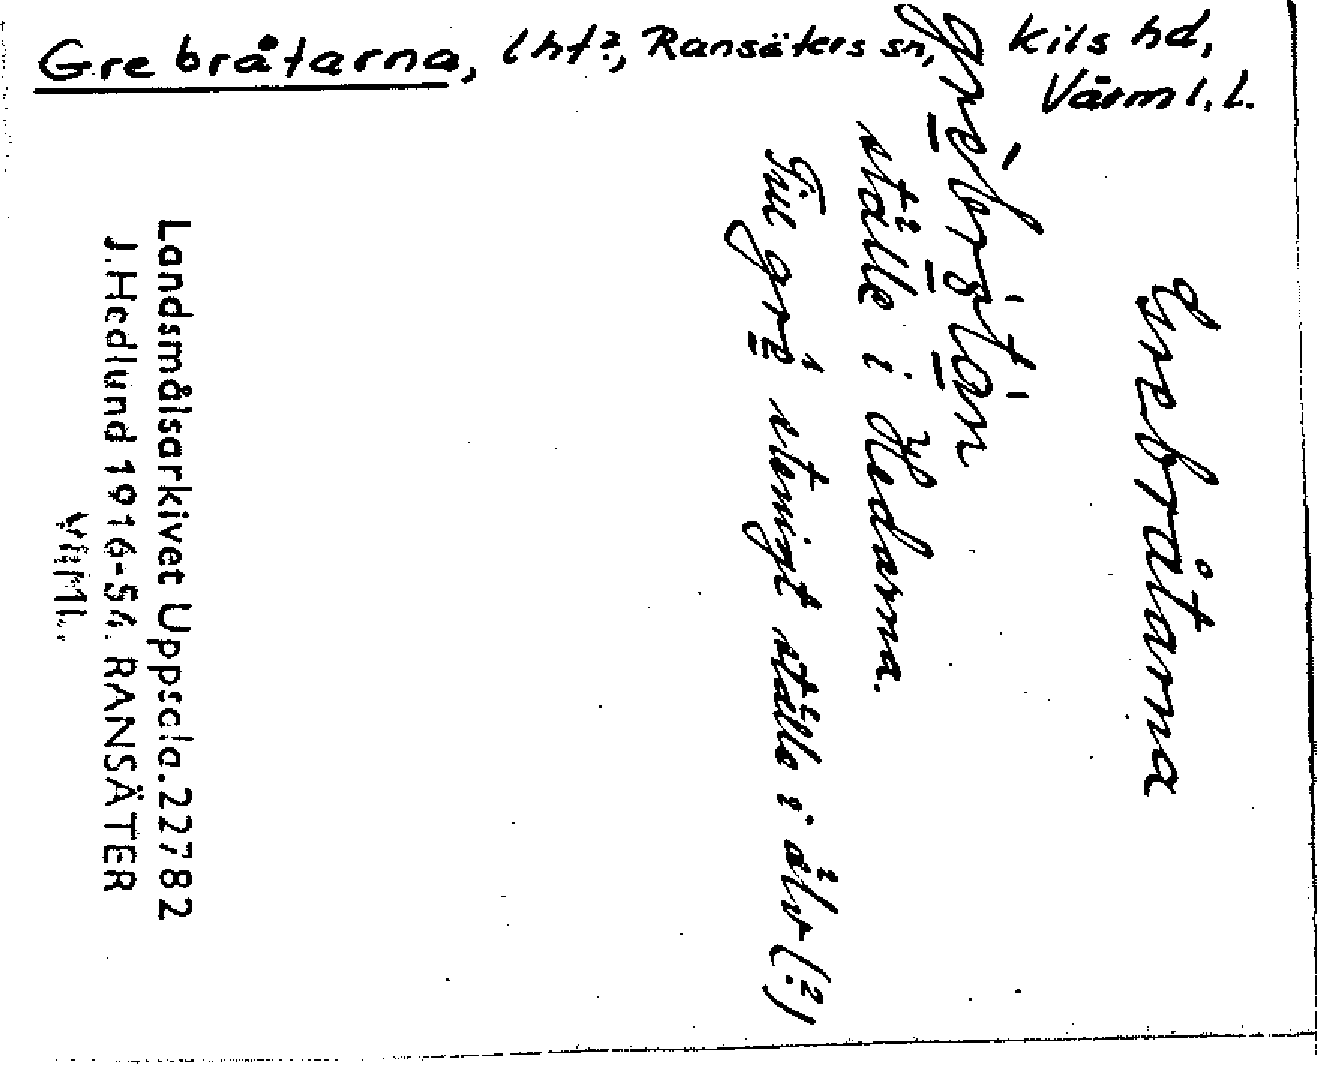 Grebråtarna, lht?, Ransäters sn, Kils hd,
Värml. L.
Grebråtarna
grèbrɷ̀tan
ställe i Hedarna.
Till grè stenigt ställe i älv (?)
Landsmålsarkivet Uppsala. 22782
J. Hedlund 1916-54. RANSÄTER
VÄRML.